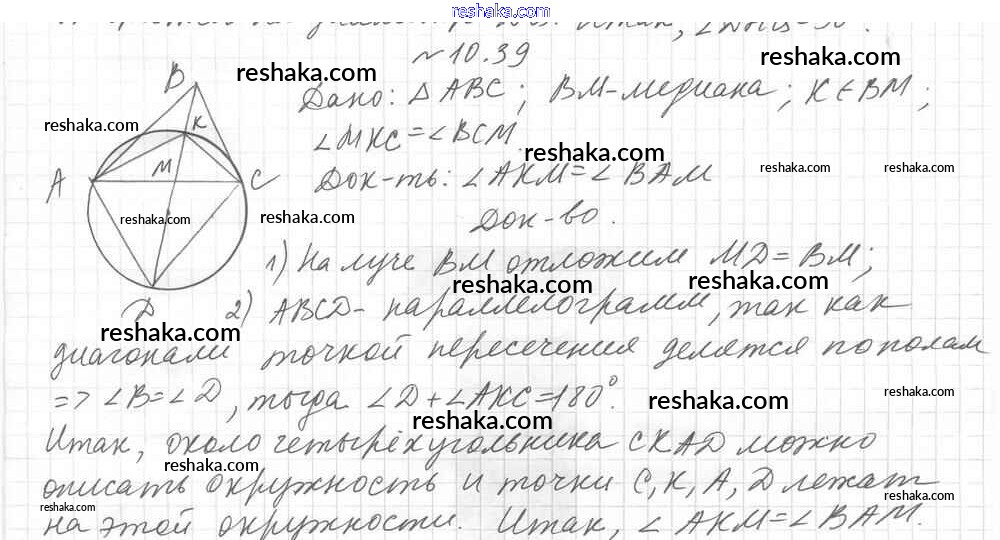 reshaka.com
Итак,
~ 10.39
reshaka.com reshaka.com
B
Дано: △ ABC; BM-медиана; K ∈ BM;
reshaka.com
K
∠MKC = ∠BCM.
reshaka.com
M
reshaka.com reshaka.com
A C
Док-ть: ∠AKM = ∠BAM
reshaka.com reshaka.com
Док-во.
1) На луче BM отложим MD = BM;
reshaka.com reshaka.com
D
2) ABCD - параллелограмм, так как
reshaka.com reshaka.com
диагонали точкой пересечения делятся пополам
=> ∠B = ∠D, тогда ∠D + ∠AKC = 180°.
reshaka.com reshaka.com
reshaka.com
Итак, около четырёхугольника CKAD можно
reshaka.com
описать окружность и точки C, K, A, D лежат
reshaka.com reshaka.com
на этой окружности. Итак, ∠AKM = ∠BAM.